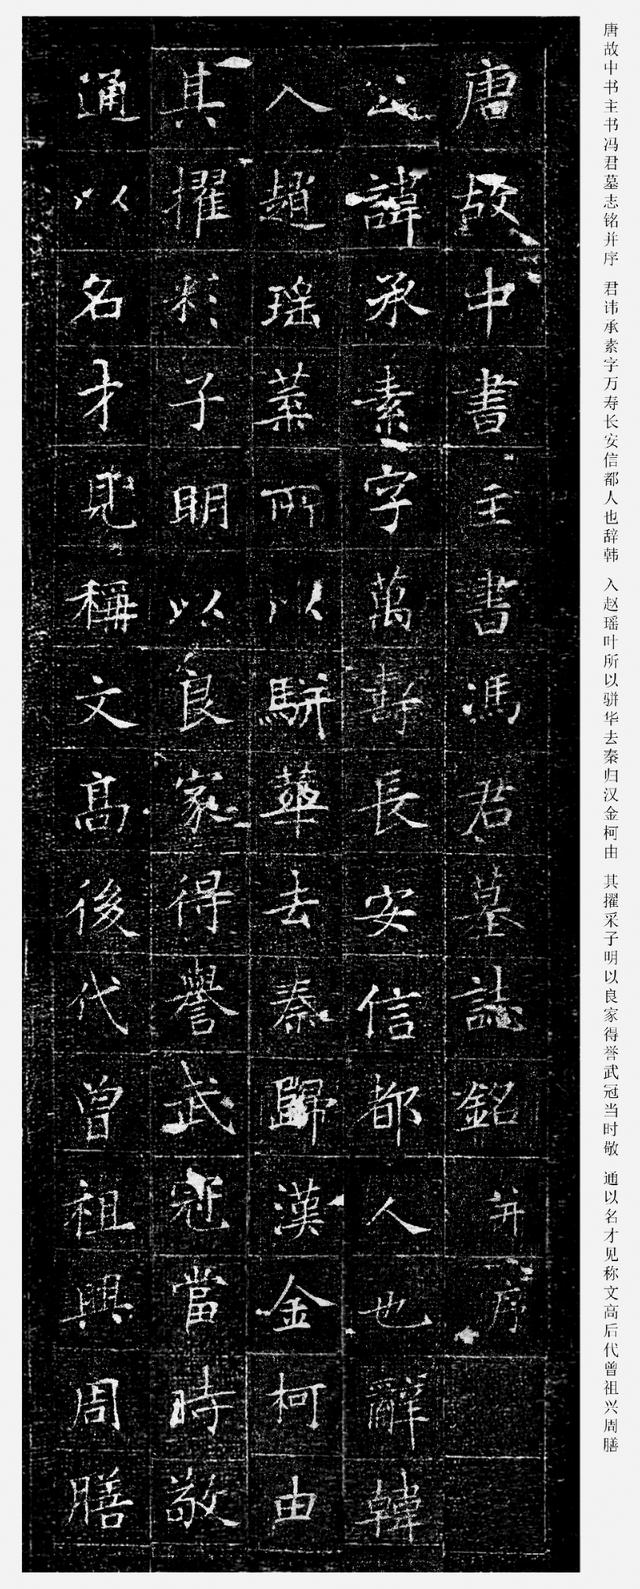 唐故中书主书冯君墓志铭并序 君讳承素字万寿长安信都人也辞韩 入赵瑶叶所以骈华去秦归汉金柯由 其擢采子明以良家得誉武冠当时敬 通以名才见称文高后代曾祖兴周膳
唐故中書主書馮君墓誌銘并序
公諱承素字萬壽長安信都人也辭韓
入趙瑶葉所以駢華去秦歸漢金柯由
其擢彩子明以良家得譽武冠當時敬
通以名才見稱文高後代曾祖興周膳